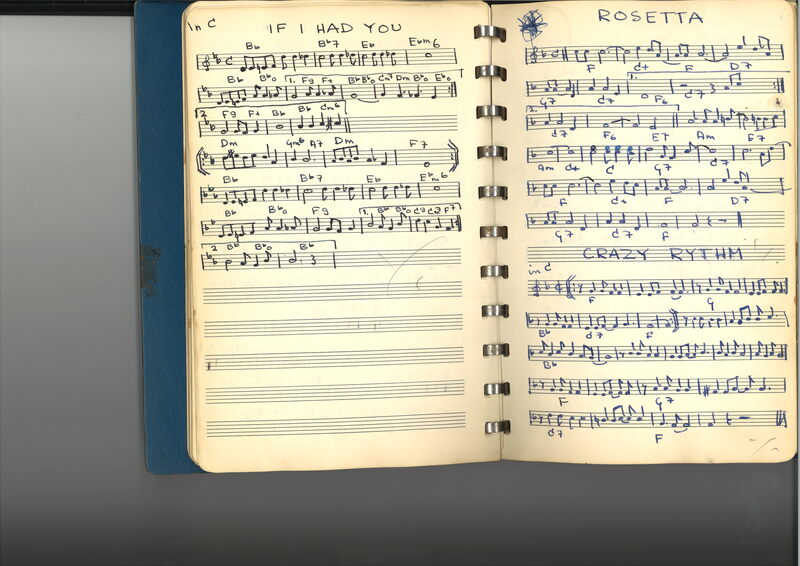 in C
IF I HAD YOU
Bb Bb7 Eb Ebm6
Bb Bbo 1. F9 F+ Bb Bbo Cm7 Dm Bbo Ebo
2 F9 F+ Bb Bb Cm6
Dm Gm6 A7 Dm F7
Bb Bb7 Eb Ebm6
Bb Bbo F9 1. Bb Bbo C9 C7 F7
2 Bb Bbo Bb
ROSETTA
F C+ F D7
1.
G7 C7 F6 C7
2.
C7 F6 E7 Am E7
Am C+ C G7 C7
F C+ F D7
G7 C7 F
CRAZY RYTHM
in C
F G
Bb C7 F
Bb
F G7
C7 F